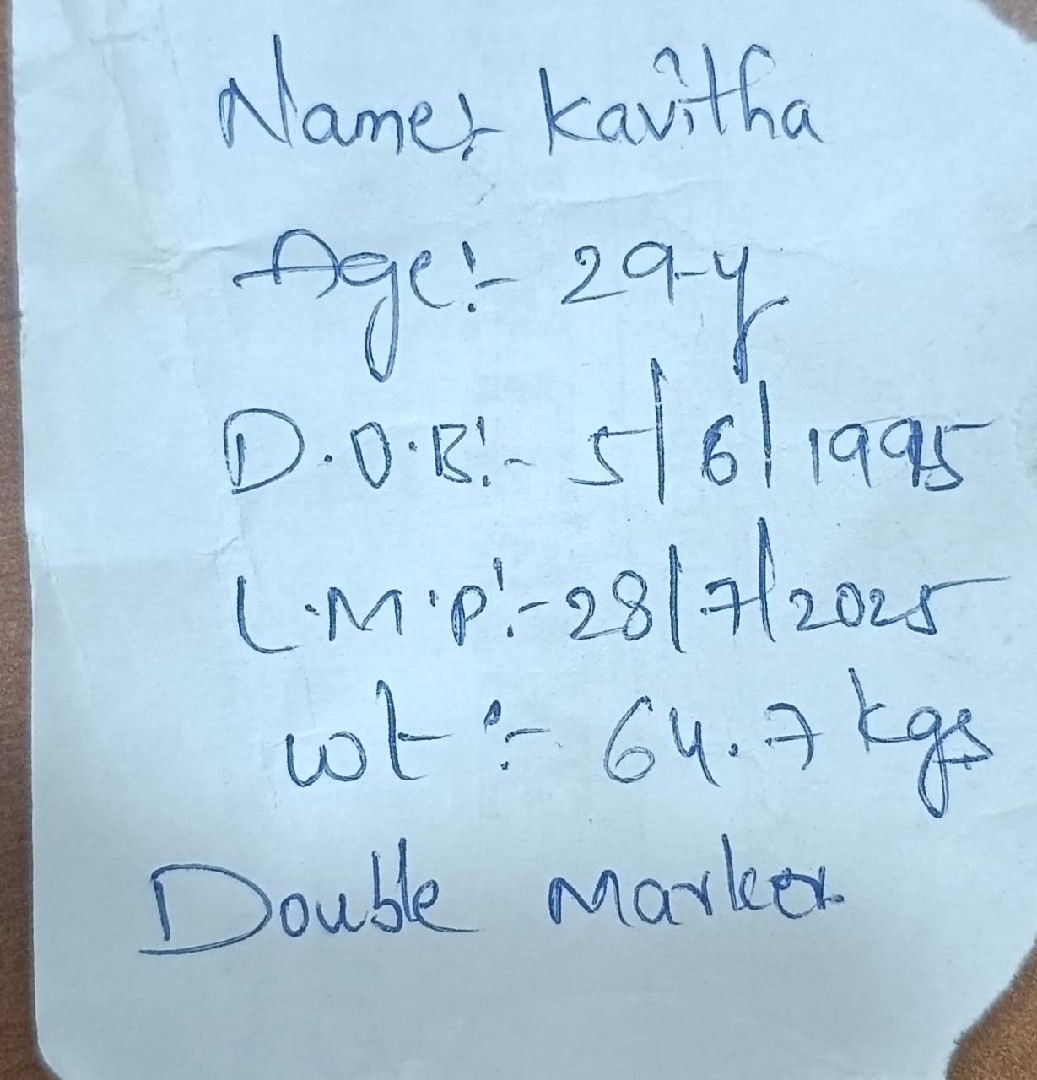 Name:- Kavitha
Age:- 29-y
D.O.B:- 5/6/1995
L.M.P:- 28/7/2025
wt:- 64.7 kgs
Double Marker